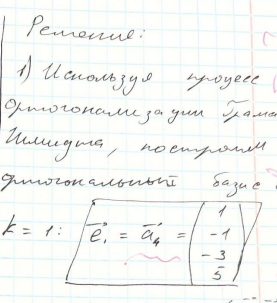 Решение:
1) Используя процесс
ортогонализации Грама
Шмидта, построим
ортогональный базис
k = 1: e⃗₁ = a⃗₄ = (1 -1 -3 5)